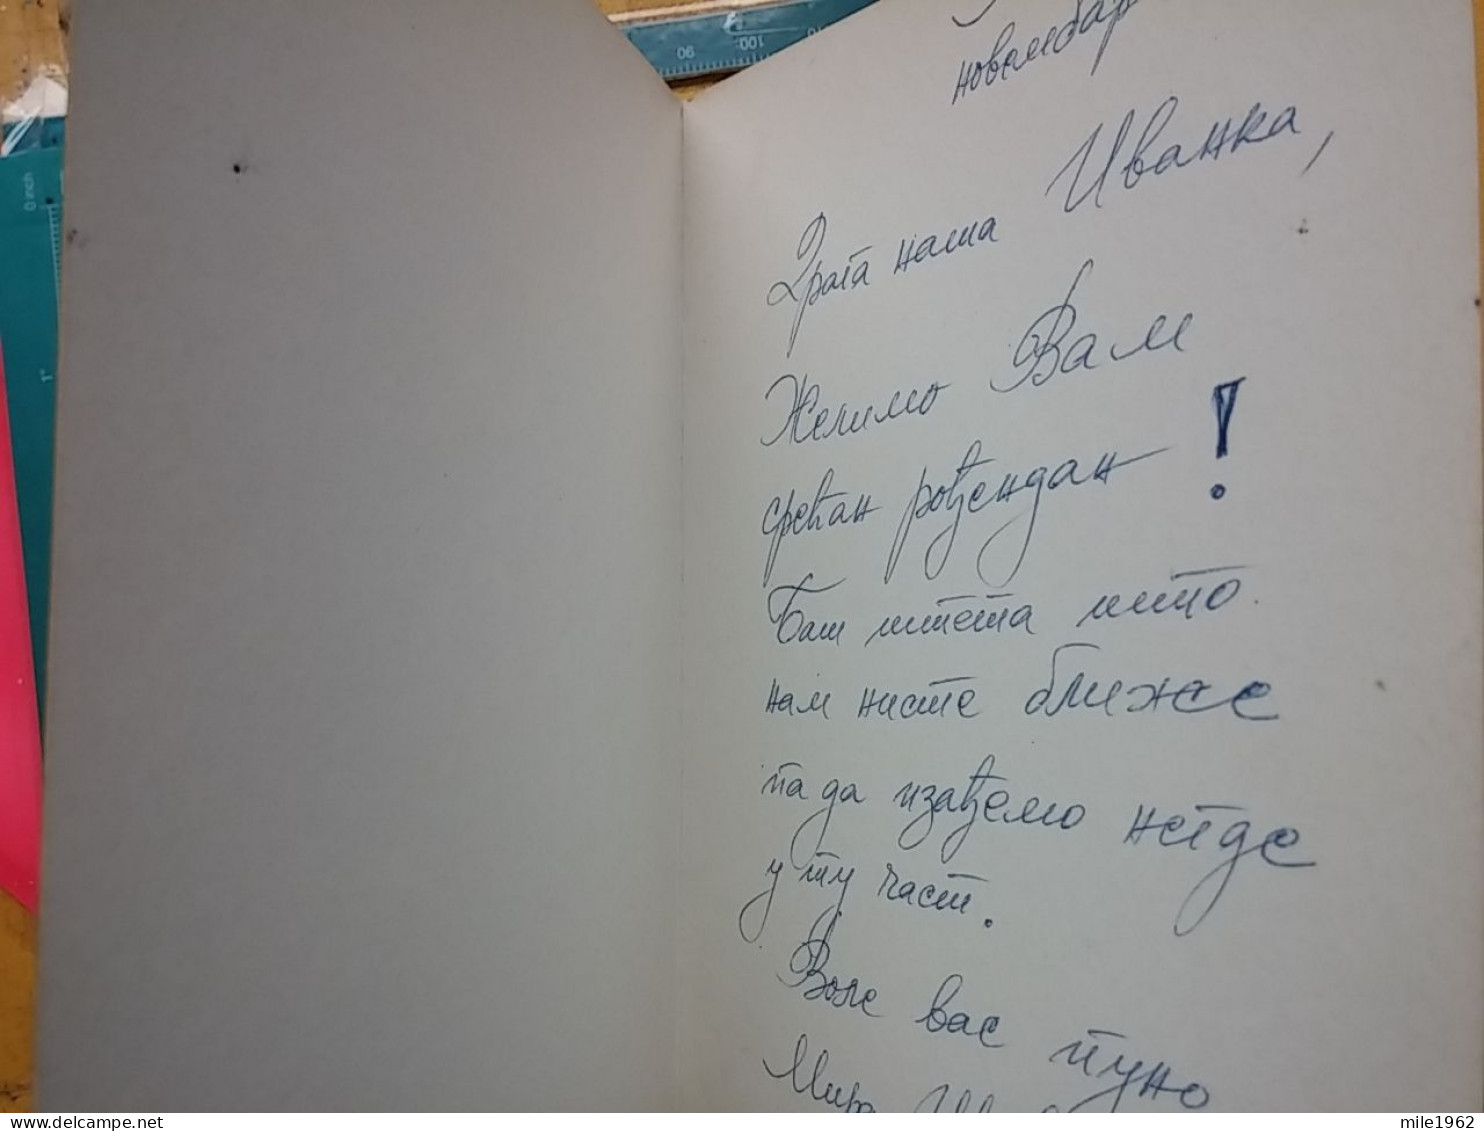 новембар
Драга наша Иванка,
Желимо Вам
срећан рођендан!
Баш штета што
нам нисте ближе
па да изађемо негде
у ту част.
Воле вас пуно
Мира
90
100
0 inch
1"
mile1962